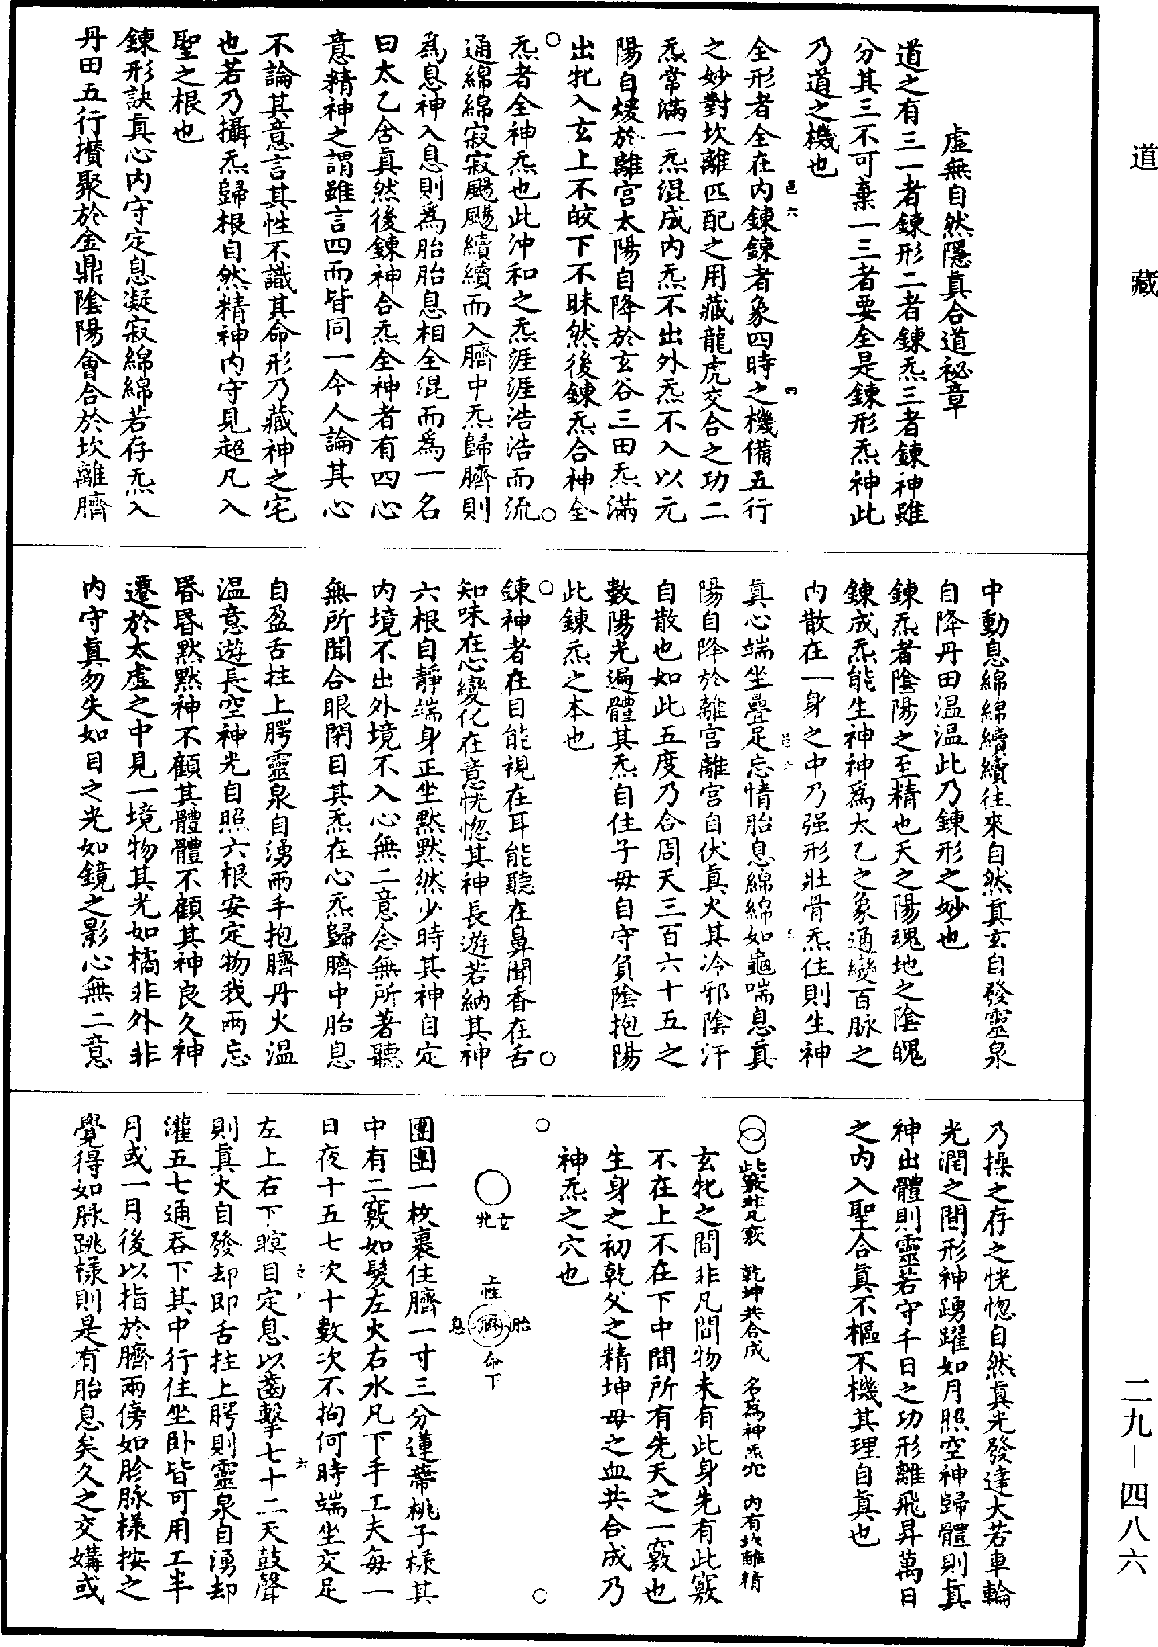 道藏
二九—四八六
虛無自然隱真合道祕章
道之有三一者鍊形二者鍊炁三者鍊神雖
分其三不可棄一三者要全是鍊形炁神此
乃道之機也
全形者全在內鍊鍊者象四時之機備五行
之妙對坎離匹配之用藏龍虎交合之功二
炁常滿一炁混成內炁不出外炁不入以元
陽自煖於離宮太陽自降於玄谷三田炁滿
出牝入玄上不皎下不昧然後鍊炁合神全
炁者全神炁也此沖和之炁涯涯浩浩而流
通綿綿寂寂颼颼續續而入臍中炁歸臍則
為息神入息則為胎胎息相全混而為一名
曰太乙含真然後鍊神合炁全神者有四心
意精神之謂雖言四而皆同一今人論其心
不論其意言其性不識其命形乃藏神之宅
也若乃攝炁歸根自然精神內守見超凡入
聖之根也
鍊形訣真心內守定息凝寂綿綿若存炁入
丹田五行攢聚於金鼎陰陽會合於坎離臍
中動息綿綿續續往來自然真玄自發靈泉
自降丹田溫溫此乃鍊形之妙也
鍊炁者陰陽之至精也天之陽魂地之陰魄
鍊成炁能生神神為太乙之象通變百脉之
內散在一身之中乃强形壯骨炁住則生神
真心端坐疊足忘情胎息綿綿如龜喘息真
陽自降於離宮離宮自伏真火其冷邪陰汗
自散也如此五度乃合周天三百六十五之
數陽光遍體其炁自住子母自守負陰抱陽
此鍊炁之本也
鍊神者在目能視在耳能聽在鼻聞香在舌
知味在心變化在意恍惚其神長遊若納其神
六根自靜端身正坐默默然少時其神自定
內境不出外境不入心無二意念無所著聽
無所聞合眼閉目其炁在心炁歸臍中胎息
自盈舌柱上腭靈泉自湧兩手抱臍丹火溫
溫意遊長空神光自照六根安定物我兩忘
昏昏默默神不顧其體體不顧其神良久神
遷於太虛之中見一境物其光如橘非外非
內守真勿失如目之光如鏡之影心無二意
乃操之存之恍惚自然真光發達大若車輪
光潤之間形神踴躍如月照空神歸體則真
神出體則靈若守千日之功形離飛昇萬日
之內入聖合真不樞不機其理自真也
此竅非凡竅 乾坤共合成 名為神炁穴 內有坎離精
玄牝之間非凡間物未有此身先有此竅
不在上不在下中間所有先天之一竅也
生身之初乾父之精坤母之血共合成乃
神炁之穴也
玄牝
上性 胎息 命下
團團一枚裹住臍一寸三分蓮蒂桃子樣其
中有二竅如髮左火右水凡下手工夫每一
日夜十五七次十數次不拘何時端坐交足
左上右下瞑目定息以齒擊七十二天鼓聲
則真火自發却即舌柱上腭則靈泉自湧却
灌五七通吞下其中行住坐卧皆可用工半
月或一月後以指於臍兩傍如胗脉樣按之
覺得如脉跳樣則是有胎息矣久之交媾或